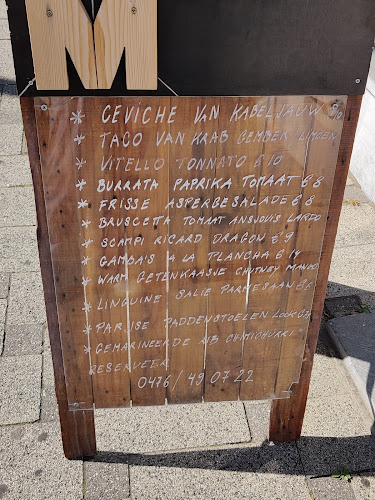 M
* CEVICHE VAN KABELJAUW 9/10
* TACO VAN KRAB GEMBER LIMOEN
* VITELLO TONNATO €10
* BURRATA PAPRIKA TOMAAT €8
* FRISSE ASPERGESALADE €8
* BRUSCETTA TOMAAT ANSJOVIS LARDO
* SCAMPI RICARD DRAGON €9
* GAMBA'S A LA PLANCHA €14
* WARM GEITENKAASJE CHUTNEY MANGO
* LINGUINE SALIE PARMESAAN
* PARIJSE PADDENSTOELEN LOOK
* GEMARINEERDE RIB CHIMICHURRI
RESERVEER
0476/49 07 22